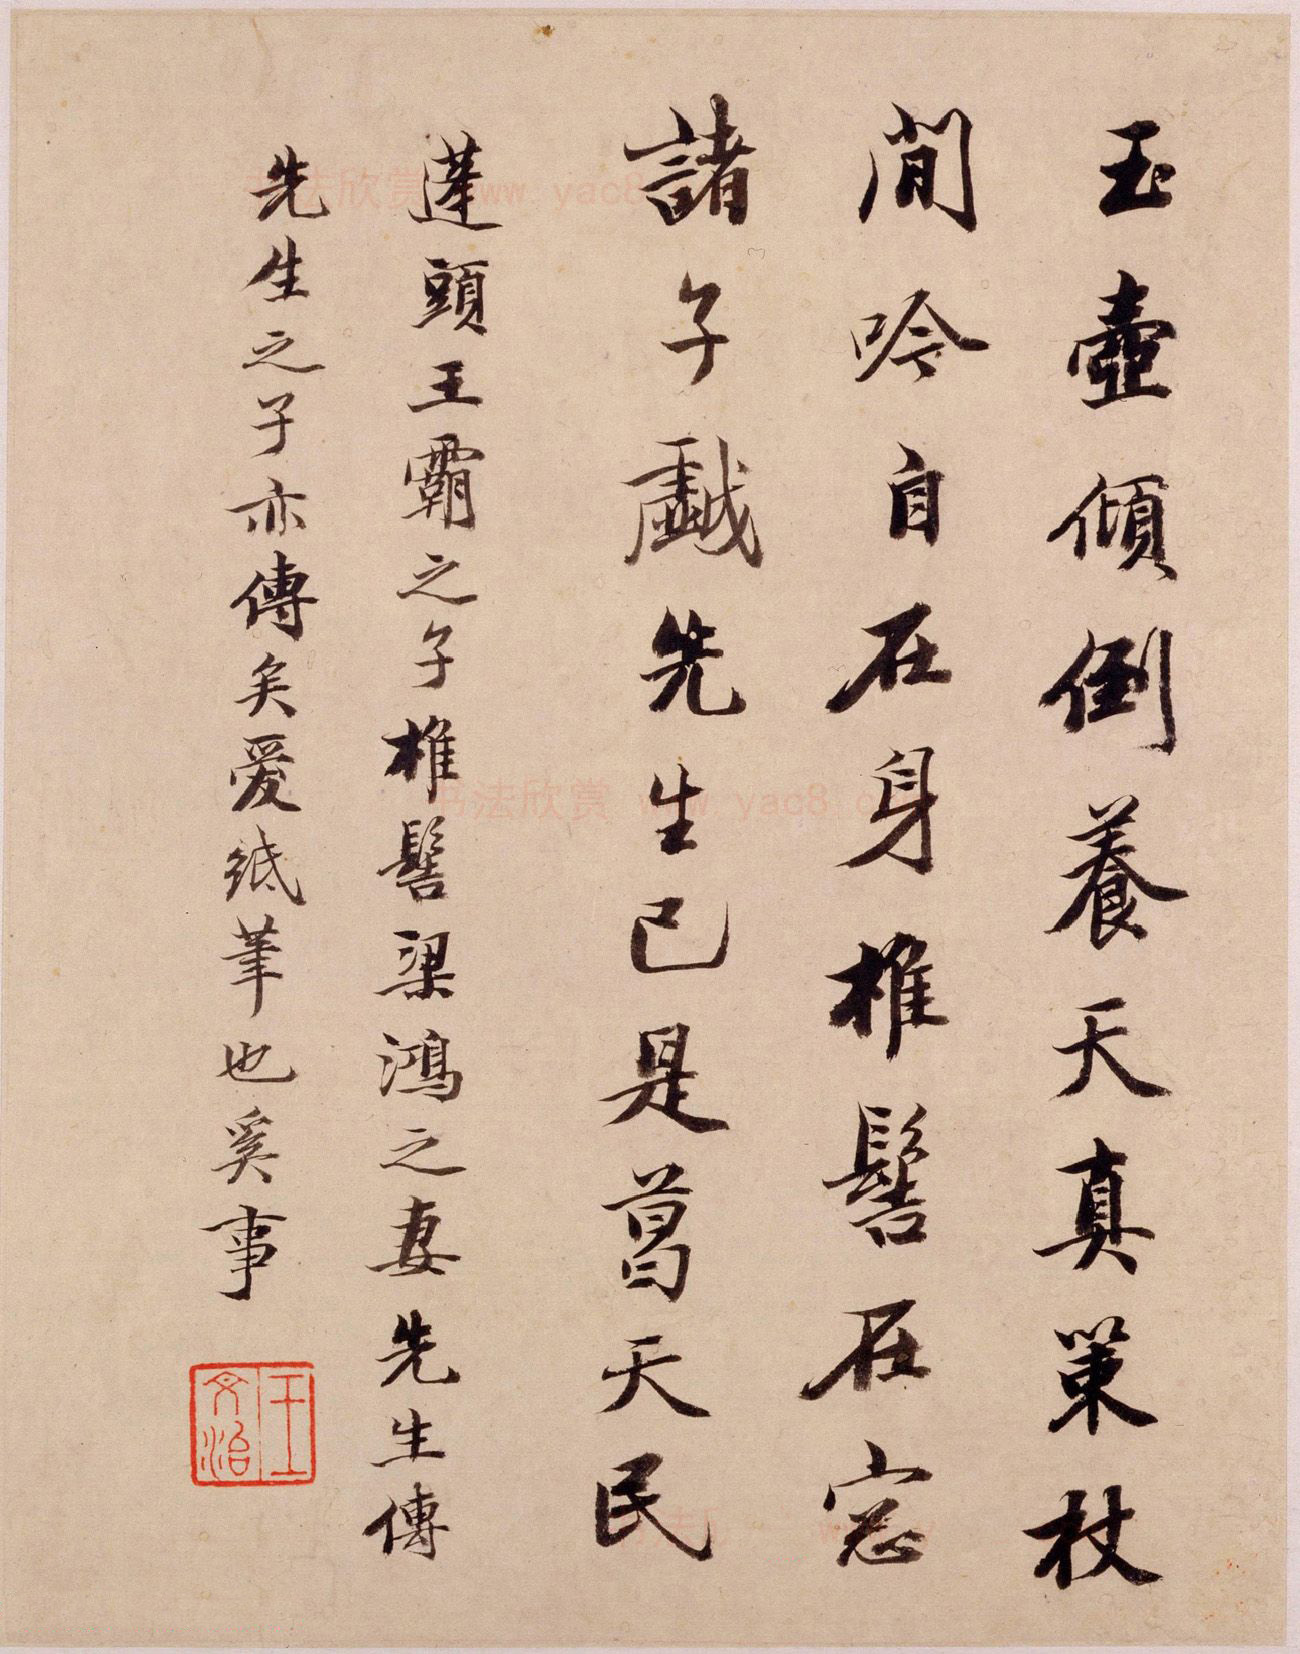 玉壺傾倒養天真策杖
閒吟自在身椎髻在窓
諸子戱先生已是葛天民
蓬頭王霸之子椎髻梁鴻之妻先生傳
先生之子亦傳矣爱紙筆也奚事
王文治
书法欣赏 www.yac8.com
书法欣赏 www.yac8.com